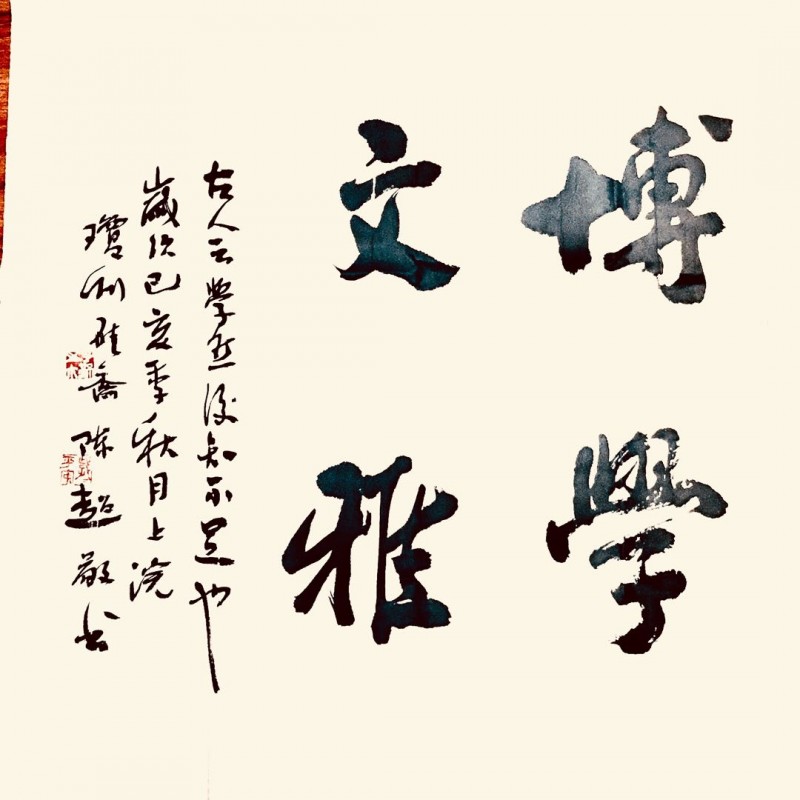 博學
文雅
古人云學然後知不足也
歲次己亥季秋月上浣
瓊州 喬 陳超敬書